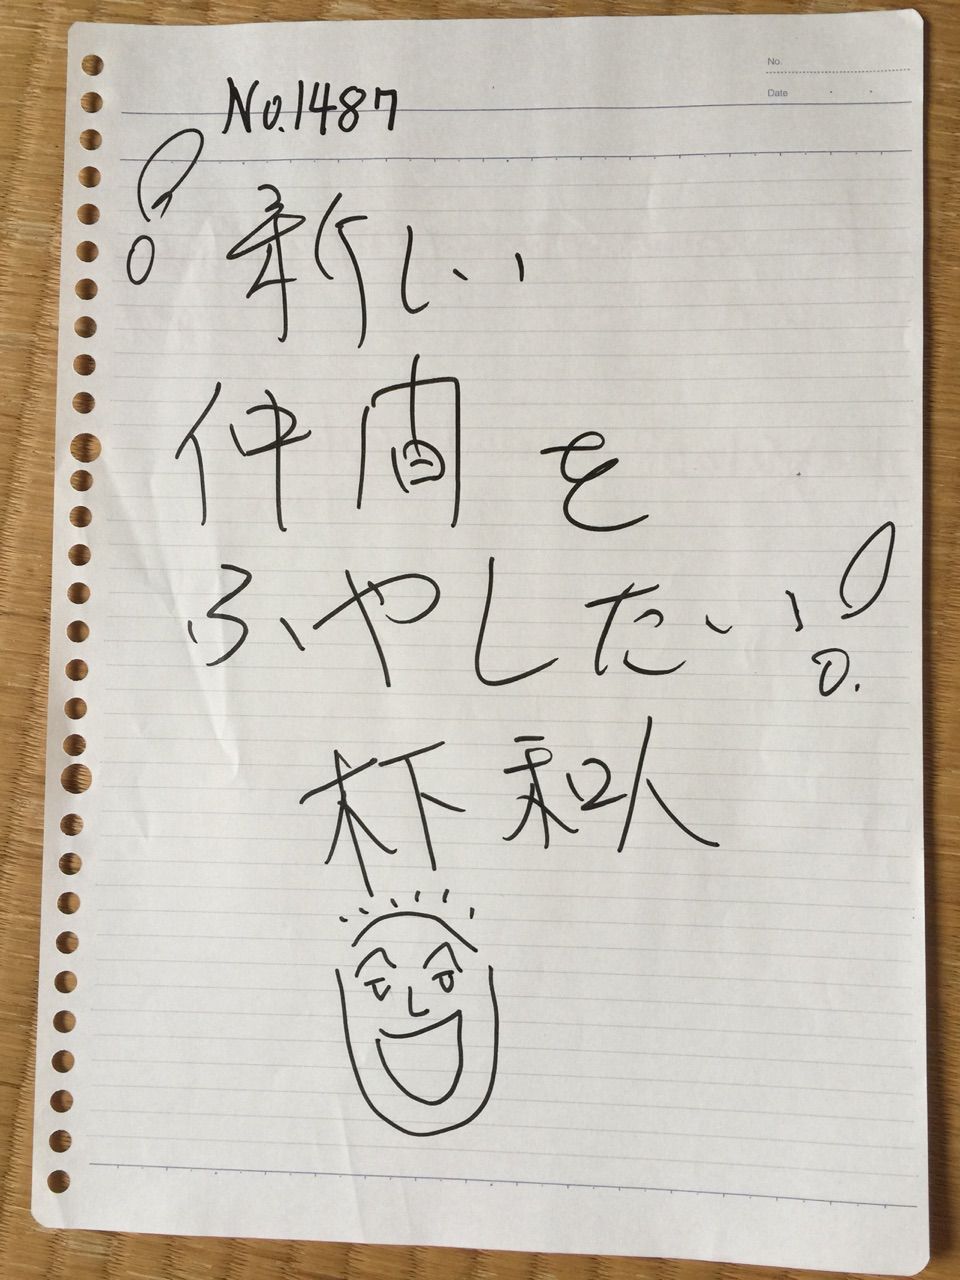 No.
Date
No.1487
！新しい
仲間を
ふやしたい！
木下和人